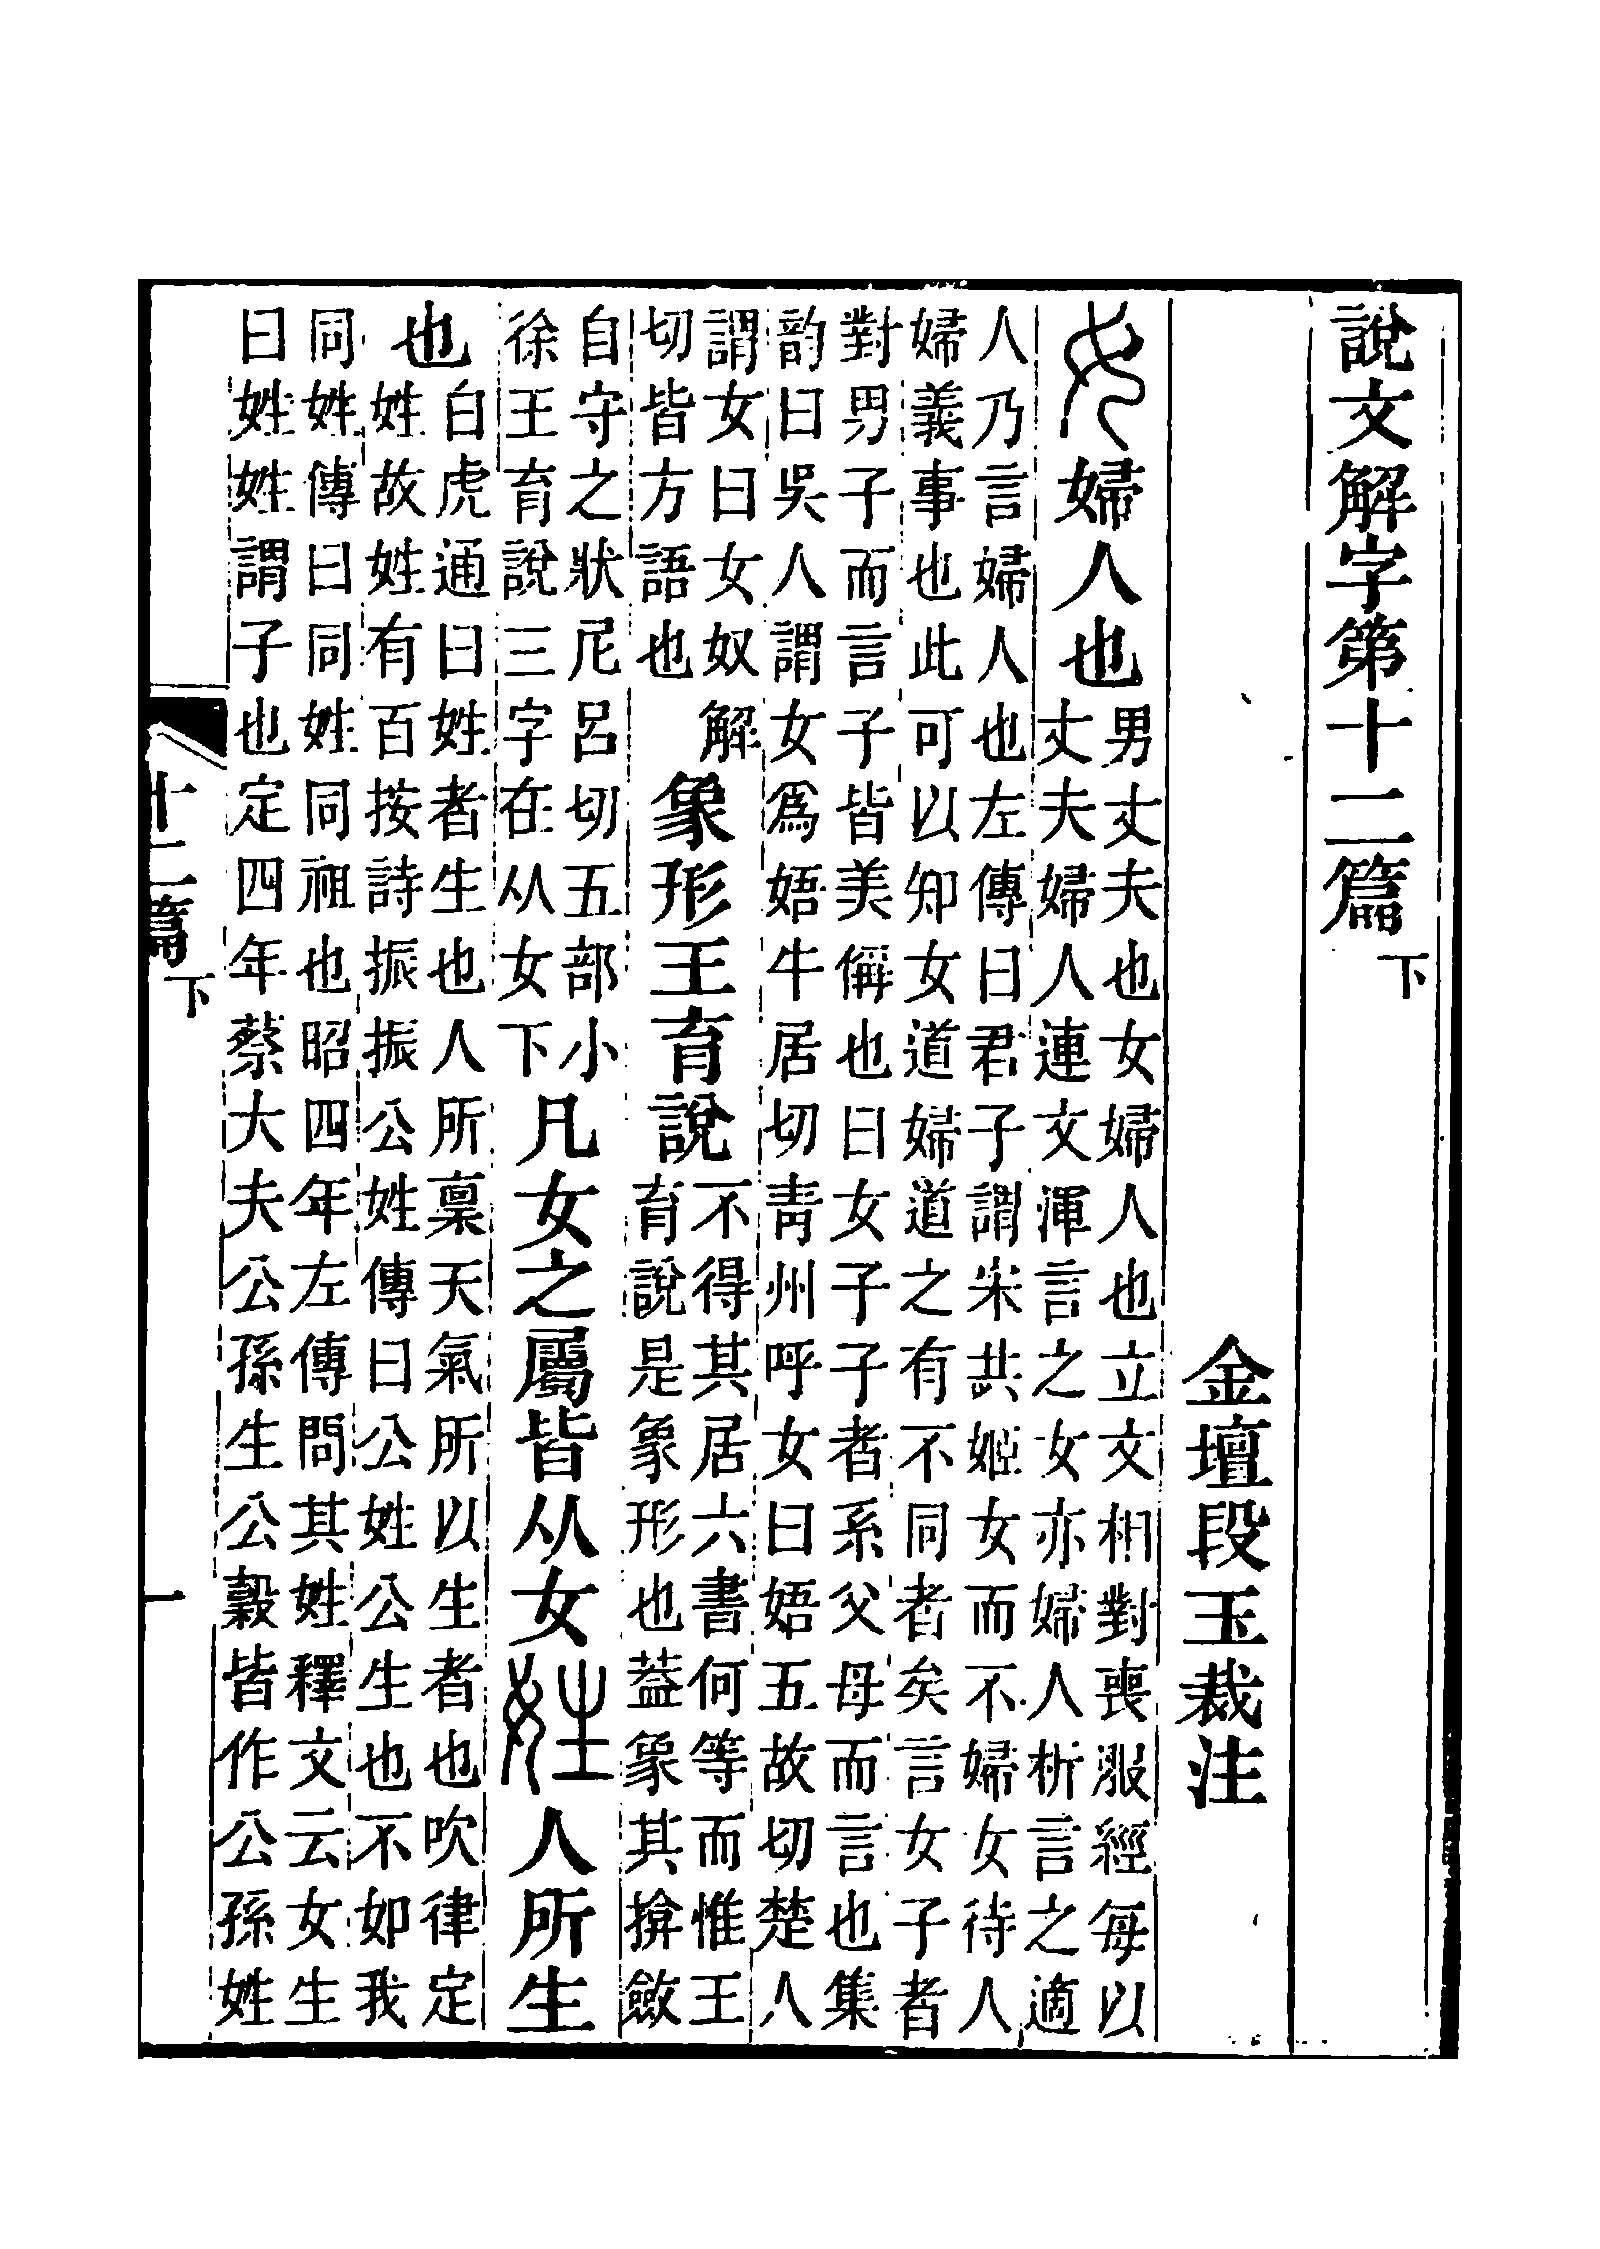 說文解字第十二篇下
金壇段玉裁注
女婦人也
男丈夫也女婦人也立文相對喪服經每以
丈夫婦人連文渾言之女亦婦人析言之適
人乃言婦人也左傳曰君子謂宋共姬女而不婦女待人
婦義事也此可以知女道婦道之有不同者矣言女子者
對男子而言子皆美偁也曰女子子者系父母而言也集
韵曰吳人謂女爲娪牛居切青州呼女曰娪五故切楚人
謂女曰女奴解
切皆方語也
象形王育說
不得其居六書何等而惟王
育說是象形也葢象其揜斂
自守之狀尼呂切五部小
徐王育說三字在从女下
凡女之屬皆从女姓人所生
也
白虎通曰姓者生也人所稟天氣所以生者也吹律定
姓故姓有百按詩振振公姓傳曰公姓公生也不如我
同姓傳曰同姓同祖也昭四年左傳問其姓釋文云女生
曰姓姓謂子也定四年蔡大夫公孫生公穀皆作公孫姓
十二篇下
一